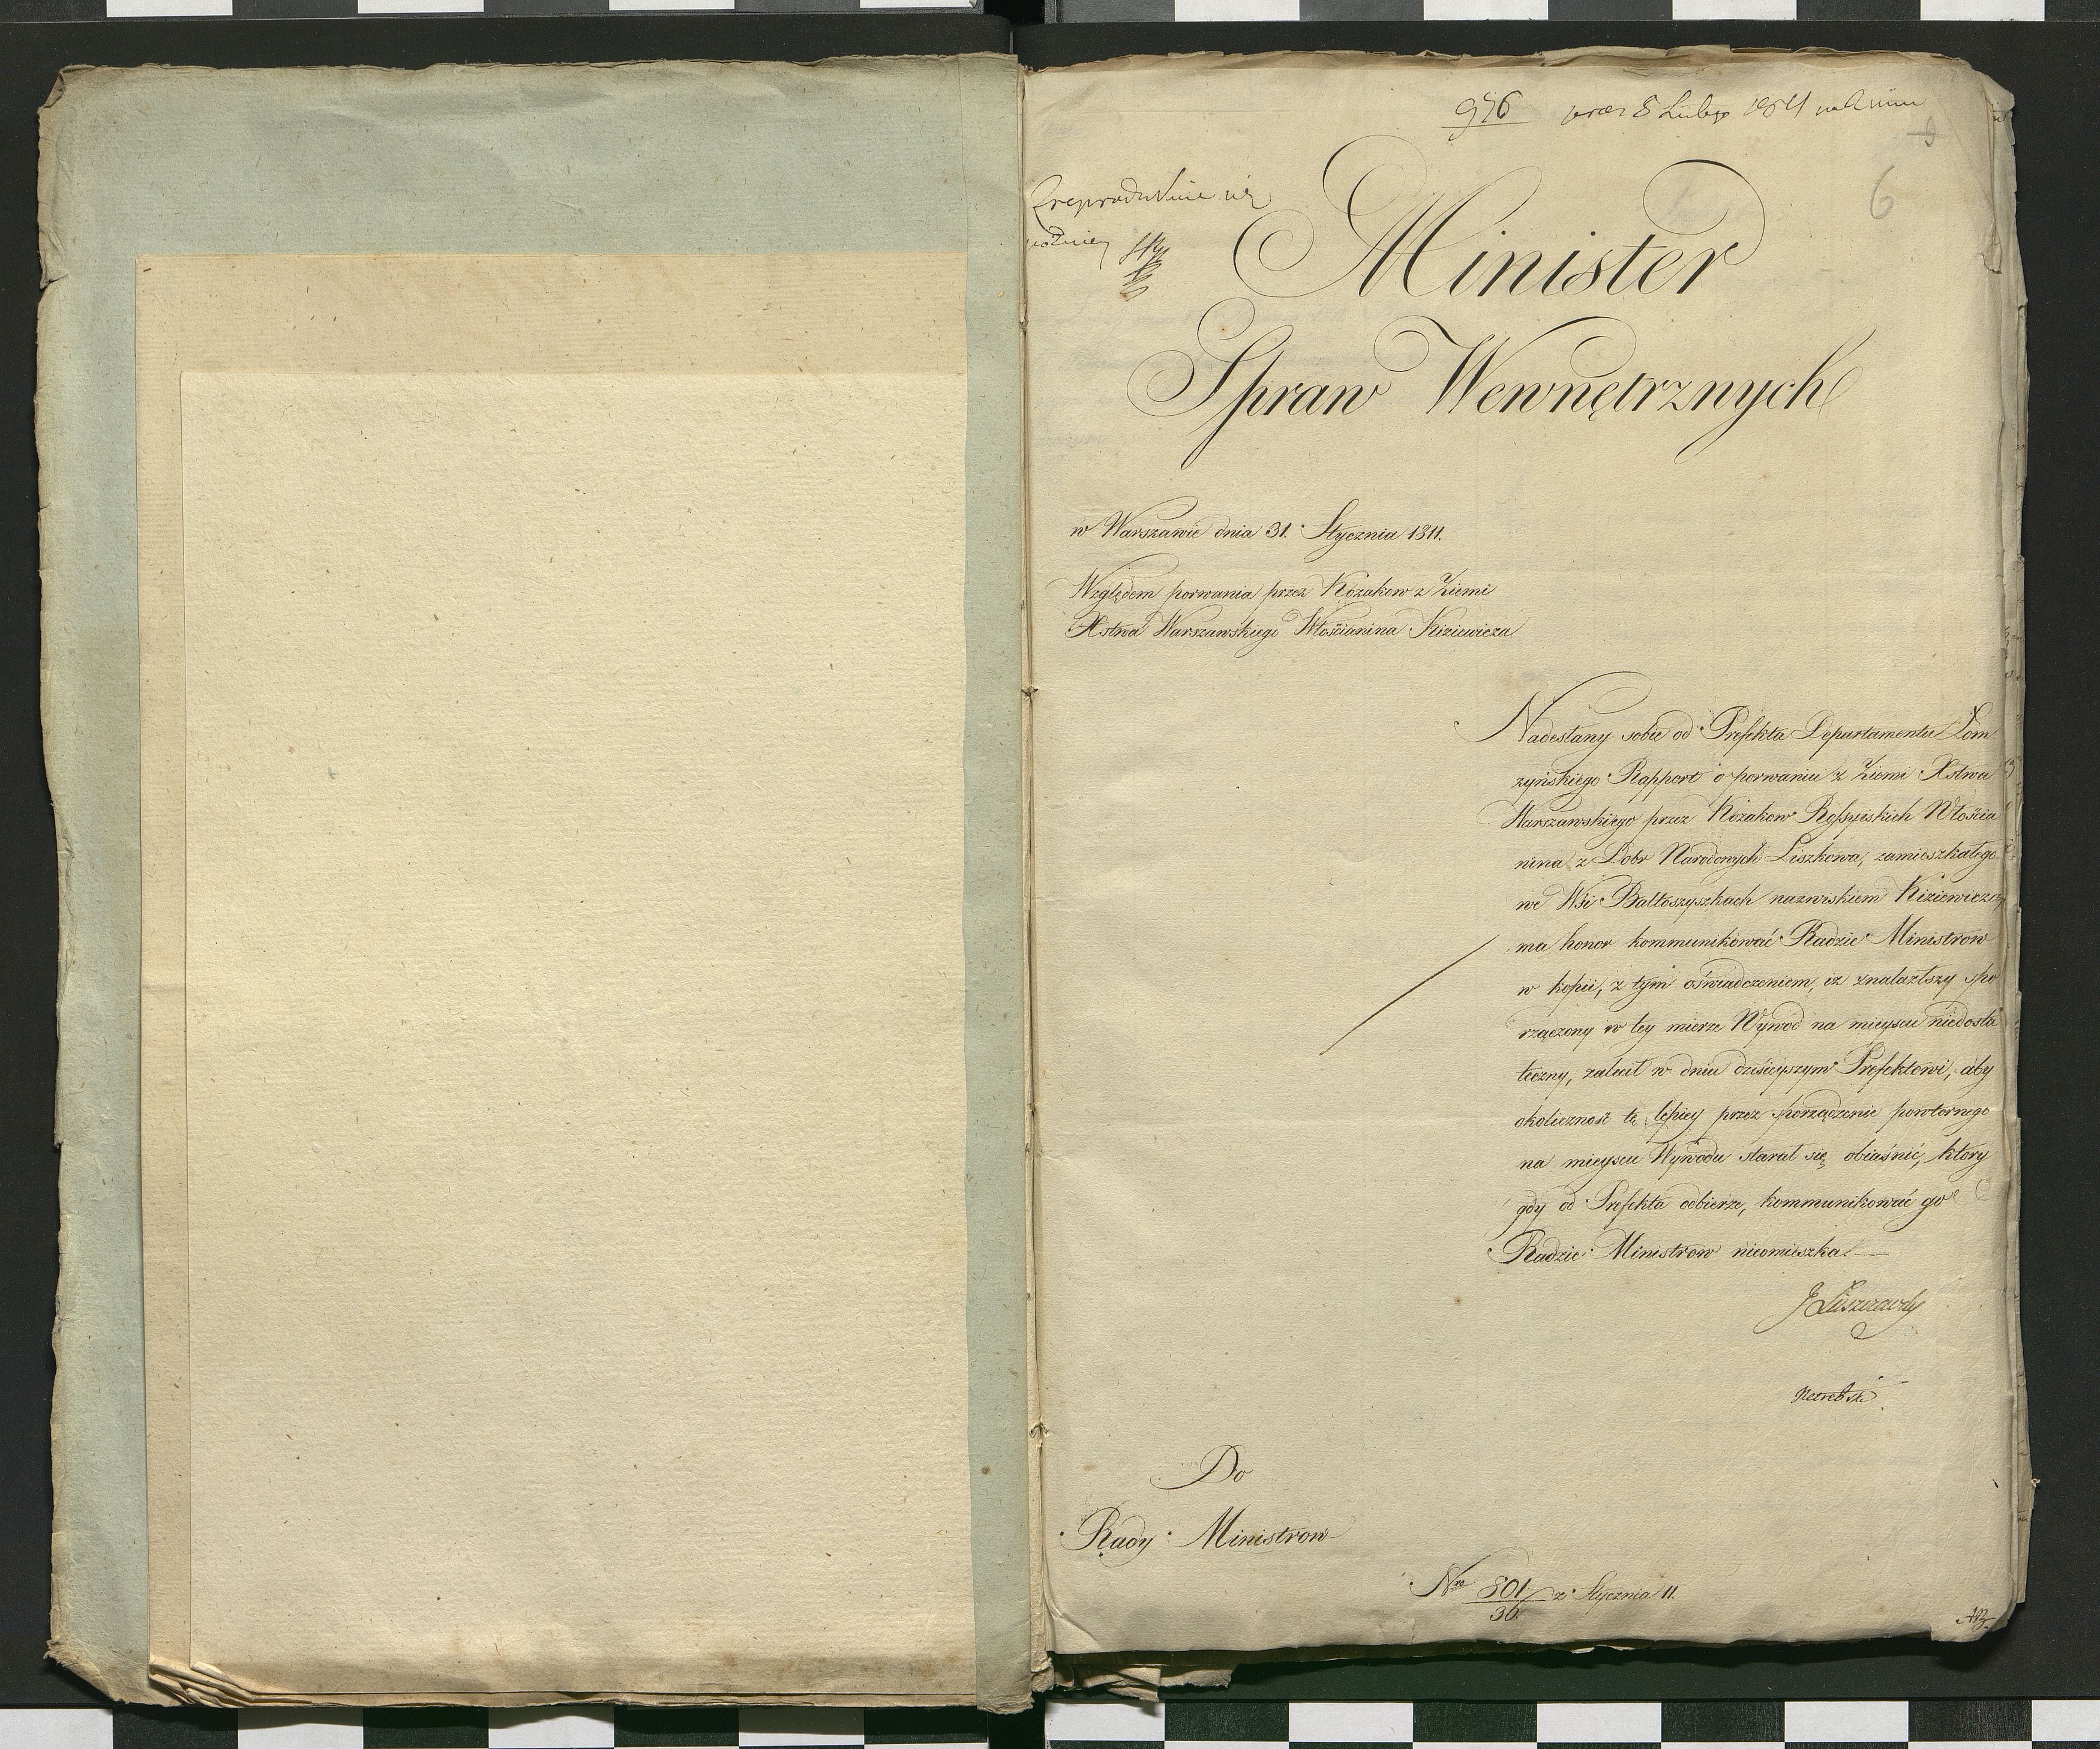 976 prez 8 Lutego 1811
6
Zreprodukuie się
późniey
Minister
Spraw Wewnętrznych
w Warszawie dnia 31. Stycznia 1811.
Względem porwania przez Kozakow z Ziemi
Xstwa Warszawskiego Włościanina Kiziewicza
Nadesłany sobie od Prefekta Departamentu Łom
zyńskiego Rapport o porwaniu z Ziemi Xstwa
Warszawskiego przez Kozakow Rossyiskich Włościa
nina z Dobr Narodowych Liszkowa, zamieszkałego
we Wsi Baltoszyszkach nazwiskiem Kiziewicza,
ma honor kommunikować Radzie Ministrow
w kopii, z tym oświadczeniem, iż znalazłszy spo
rządzony w tey mierze Wywod na mieyscu niedosta
teczny, zalecił w dniu dzisieyszym Prefektowi, aby
okoliczność tę lepiey przez sporządzenie powtornego
na mieyscu Wywodu starał się obiaśnić, ktory
gdy od Prefekta odbierze, kommunikować go
Radzie Ministrow nieomieszka.
J Łuszczewski
Do
Rady Ministrow
Nro 801/36. z Stycznia 11.